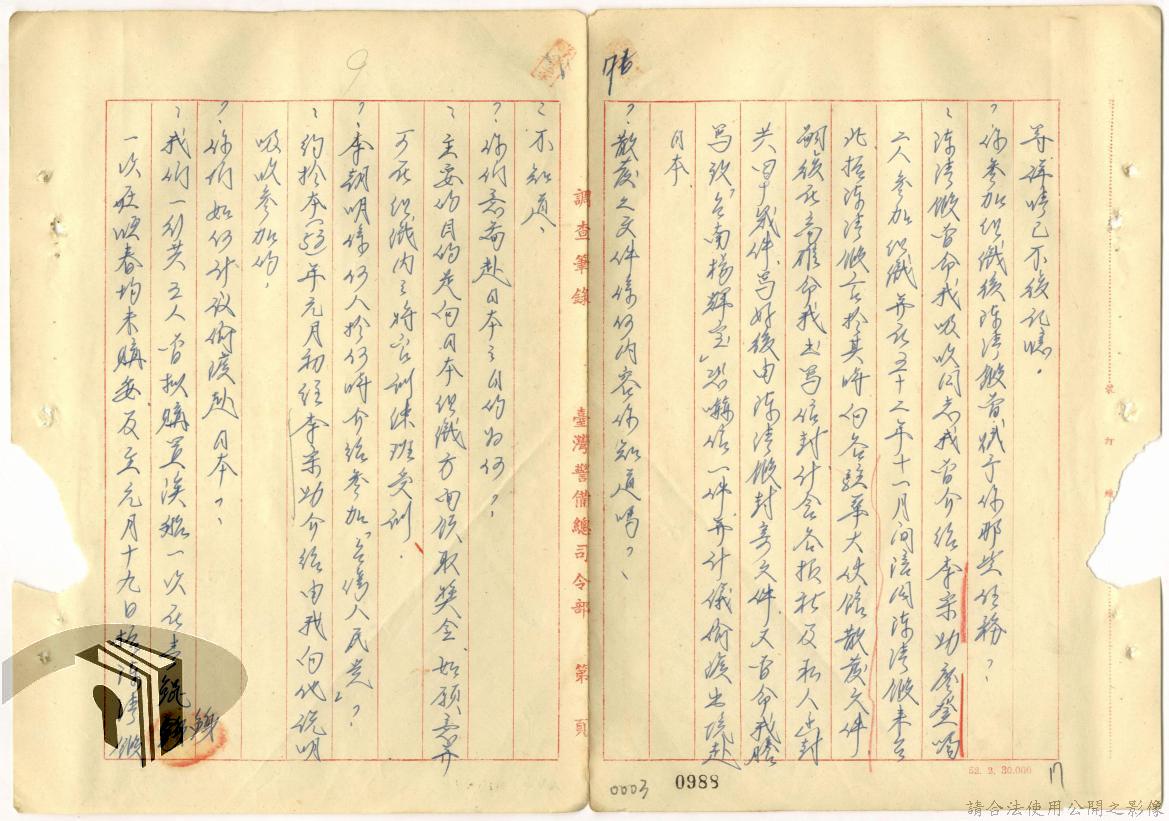 等詳情已不復記憶。
?你參加組織後陳清 曾賦予你那些任務?
陳清 曾命我吸收同志我曾介紹李宗助廖登鳴
二人參加組織并在五十二年十一月間陪同陳清 來台
北據陳清 云於其時向各駐華大使館散發文件
嗣後在高雄命我書寫信封計含各報社及私人
共 件寫好後由陳清 封寄文件又曾命我
寫致「台南楊輝宝」恐嚇信一件并計議偷渡出境赴
日本
?散發之文件係何內容你知道嗎?
76
17
52. 2. 30.000
裝
訂
線
0988
0003
調查筆錄
臺灣警備總司令部
第 頁
9
不知道、
?你們意圖赴日本之目的為何?
主要的目的是向日本組織方面領取獎金,如願意并
可在組織內之將官訓練班受訓.
?李朝明係何人於何時介紹參加「台灣人民党」?
約於本 年元月初經李宗助介紹由我向他說明
吸收參加的,
?你們如何計議偷渡赴日本?
我們一行共五人曾擬購買漁船一次在
一次在恒春均未購妥及至元月十九日 陳清
請合法使用公開之影像